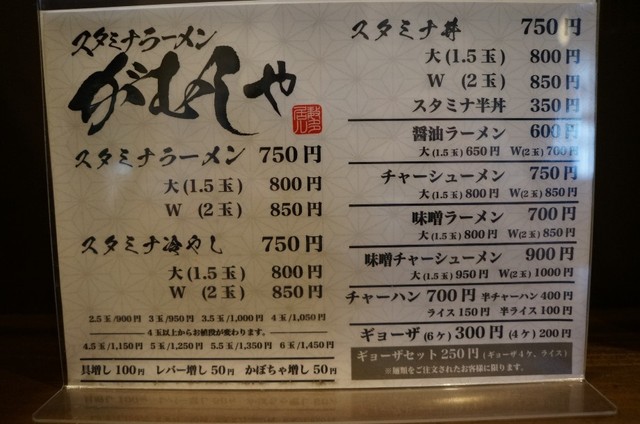 スタミナラーメン
がむしゃ
スタミナラーメン 750円
大(1.5玉) 800円
W (2玉) 850円
スタミナ冷やし 750円
大(1.5玉) 800円
W (2玉) 850円
2.5玉/900円 3玉/950円 3.5玉/1,000円 4玉/1,050円
4玉以上からお値段が変わります。
4.5玉/1,150円 5玉/1,250円 5.5玉/1,350円 6玉/1,450円
具増し100円 レバー増し50円 かぼちゃ増し50円
スタミナ丼 750円
大(1.5玉) 800円
W (2玉) 850円
スタミナ半丼 350円
醤油ラーメン 600円
大(1.5玉)650円 W(2玉)700円
チャーシューメン 750円
大(1.5玉)800円 W(2玉)850円
味噌ラーメン 700円
大(1.5玉)800円 W(2玉)850円
味噌チャーシューメン 900円
大(1.5玉)950円 W(2玉)1000円
チャーハン 700円 半チャーハン400円
ライス150円 半ライス100円
ギョーザ(6ケ)300円(4ケ)200円
ギョーザセット250円(ギョーザ4ケ、ライス)
※麺類をご注文されたお客様に限ります。